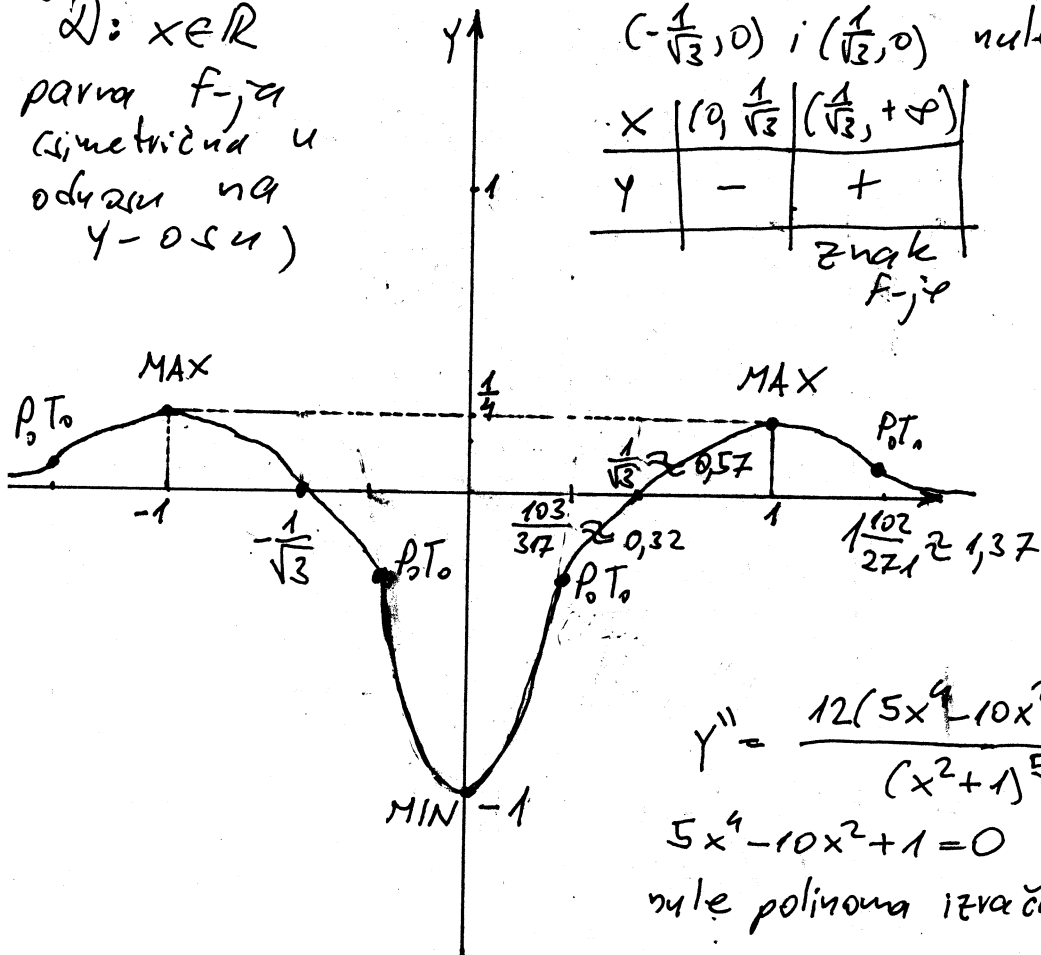 D: x∈ℝ
parna f-ja
(simetrična u
odnosu na
y-osu)
Y
(-1/√3, 0) i (1/√3, 0) nule
x | (0, 1/√3 | (1/√3, +∞)
Y | − | +
znak
f-je
1
MAX
P.T.
1/4
MAX
P.T.
1/√3 ≈ 0,57
-1
-1/√3
103/317 ≈ 0,32
1
1 102/271 ≈ 1,37
P.T.
P.T.
MIN
-1
y'' = 12(5x⁴-10x²
(x²+1)⁵
5x⁴-10x²+1=0
nule polinoma izrač